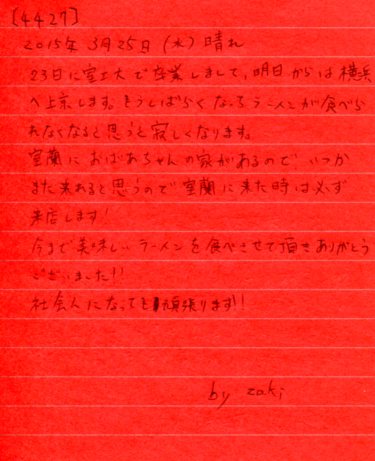 [4427]
2015年 3月25日(水)晴れ
23日に室工大で卒業しまして、明日からは横浜
へ上京します。もうしばらくなっちラーメンが食べら
れなくなると思うと寂しくなります。
室蘭におばあちゃんの家があるので、いつか
また来れると思うので室蘭に来た時は必ず
来店します!
今まで美味しいラーメンを食べさせて頂きありがとう
ございました!!
社会人になっても頑張ります!!
by zaki